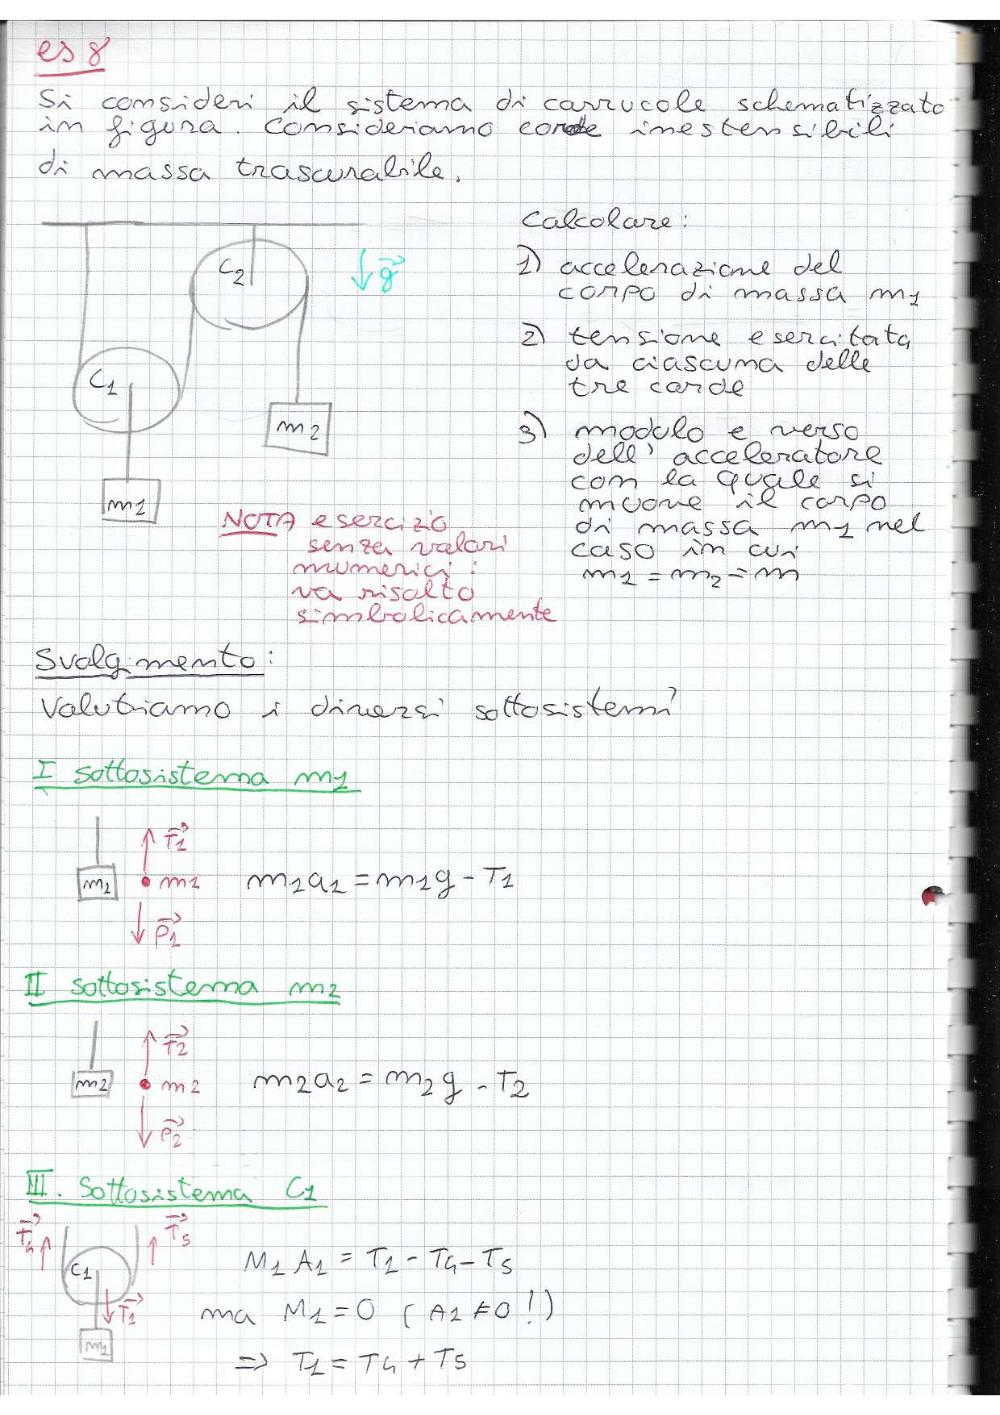 es 8
Si consideri il sistema di carrucole schematizzato
in figura. Consideriamo corde inestensibili
di massa trascurabile.
C2
g
C1
m2
m1
Calcolare:
1) accelerazione del
corpo di massa m1
2) tensione esercitata
da ciascuna delle
tre corde
3) modulo e verso
dell'acceleratore
con la quale si
muove il corpo
di massa m1 nel
caso in cui
m1 = m2 = m
NOTA esercizio
senza valori
numerici:
va risolto
simbolicamente
Svolgimento:
Valutiamo i diversi sottosistemi
I sottosistema m1
T1
m1
m1
P1
m1a1 = m1g - T1
II sottosistema m2
T2
m2
m2
P2
m2a2 = m2g - T2
III. Sottosistema C1
T4
T5
C1
T1
m1
M1 A1 = T1 - T4 - T5
ma M1 = 0 (A1 ≠ 0!)
=> T1 = T4 + T5